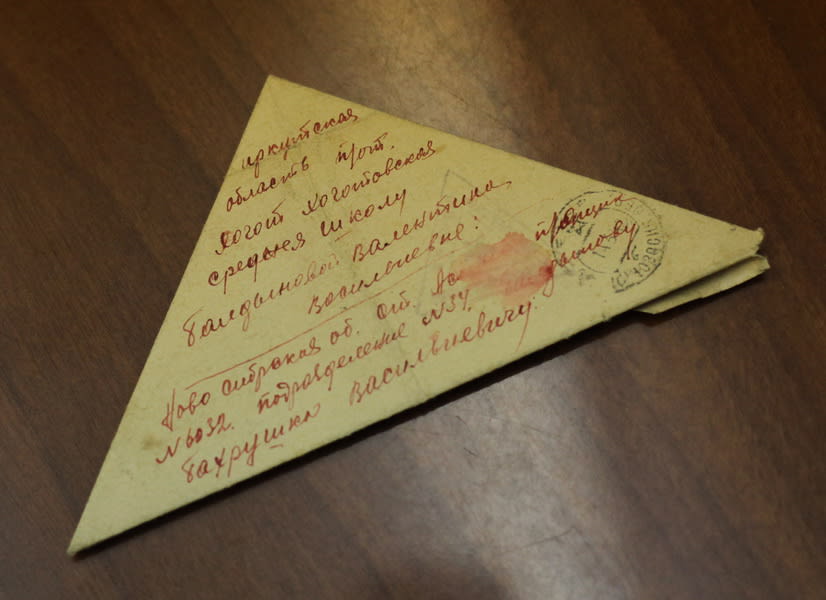 иркутская
область п/от.
Хоготт Хоготовская
средняя школу
Балдыновой Валентина
Васильевне:
Ново сибрская об. Ст. п/ящик
№6032. подразделение №34. Балдынову
Бахрушка Васильиевичу.